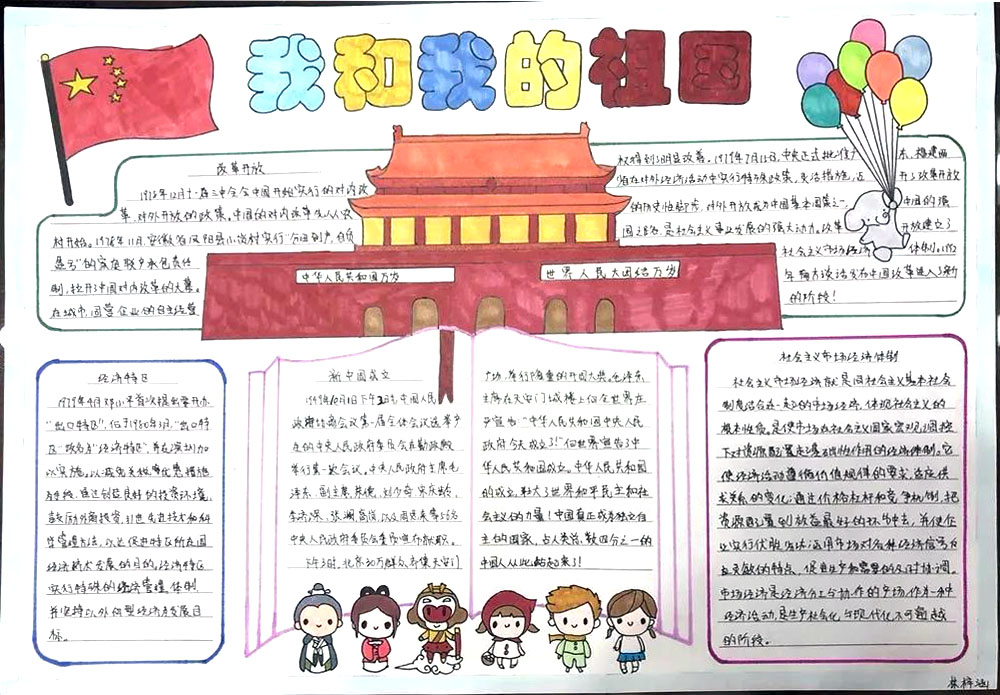 我和我的祖国
改革开放
1978年12月十一届三中全会中国开始实行的对内改
革、对外开放的政策。中国的对内改革先从农
村开始。1978年11月,安徽省凤阳县小岗村实行"分田到户,自负
盈亏"的家庭联产承包责任
制,拉开了中国对内改革的大幕。
在城市,国营企业的自主经营
权得到了明显改善。1979年7月15日,中央正式批准广东、福建两
省在对外经济活动中实行特殊政策、灵活措施,迈开了改革开放
的历史性脚步,对外开放成为中国基本国策之一,中国的强
国之路,是社会主义事业发展的强大动力。改革开放建立了
社会主义市场经济体制。1992
年南方谈话发布中国改革进入了新
的阶段!
中华人民共和国万岁
世界人民大团结万岁
经济特区
1979年4月邓小平首次提出要开办
"出口特区",
区"改名为"经济特区",并在深圳加
以实施。以减免关税等优惠措施
为手段,通过创造良好的投资环境,
鼓励外商投资,引进先进技术和科
学管理方法,以达促进特区所在国
经济技术发展的目的。经济特区
实行特殊的经济管理体制,
并坚持以外向型经济为发展目
标。
新中国成立
1949年10月1日下午2时,中国人民
政治协商会议第一届全体会议选举产
生的中央人民政府委员会在勤政殿
举行第一次会议。中央人民政府主席毛
泽东,副主席朱德、刘少奇、宋庆龄、
李济深、张澜、高岗,以及周恩来等56名
中央人民政府委员会委员宣布就职。
下午3时,北京30万群众齐集天安门
广场,举行隆重的开国大典。毛泽东
主席在天安门城楼上向全世界庄
严宣告:"中华人民共和国中央人民
政府今天成立了!"向世界宣告了中
华人民共和国成立。中华人民共和国
的成立,壮大了世界和平民主和社
会主义的力量!中国真正成为独立自
主的国家,占人类总数四分之一的
中国人从此站起来了!
社会主义市场经济体制
社会主义市场经济就是同社会主义基本社会
制度结合在一起的市场经济,体现社会主义的
根本性质。是使市场在社会主义国家宏观调控
下对资源配置起基础性作用的经济体制。它
使经济活动遵循价值规律的要求,适应供
求关系的变化;通过价格杠杆和竞争机制,把
资源配置到效益最好的环节中去,并使企
业实行优胜劣汰;运用市场对各种经济信号反
应灵敏的特点,促进生产和需要的及时协调。
市场经济是经济分工分协作的产物,作为一种
经济活动是生产社会化与现代化不可逾越
的阶段。
林梓涵